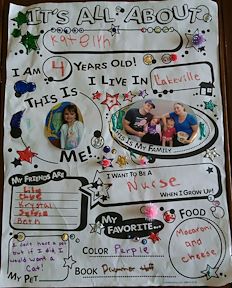 IT'S ALL ABOUT
Katelyn
I AM 4 YEARS OLD!
I LIVE IN Lakeville
THIS IS
ME!
THIS IS MY FAMILY
MY FRIENDS ARE
Lily
Krystal
Beth
I WANT TO BE A
Nurse
WHEN I GROW UP!
MY FAVORITE...
FOOD
Macaroni
and
cheese
COLOR Purple
BOOK
I don't have a pet
but if I did I
would want a
Cat!
MY PET